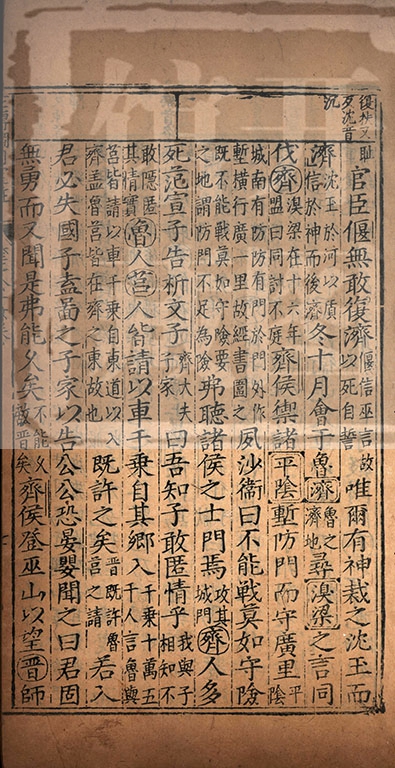 復扶又反沈音沉
耻官臣偃無敢復濟偃信巫言故以死自誓唯爾有神裁之沈玉而
濟沈玉於河以質信於神而後濟冬十月會于魯濟魯之濟地尋湨梁之言同
伐齊湨梁在十六年盟曰同討不庭齊侯禦諸平陰塹防門而守廣里平陰
城南有防防有門於門外作塹橫行廣一里故經書圍之夙沙衞曰不能戰莫如守險
既不能戰莫如守險要之地謂防門不足為險弗聽諸侯之士門焉攻其城門齊人多
死范宣子告析文子齊大夫子家曰吾知子敢匿情乎我與子相知不
敢隱匿其情實魯人莒人皆請以車千乘自其鄉入千乘十萬五千人言魯與
莒皆請以車千乘自東道以入齊蓋魯莒皆在齊之東故也既許之矣晉既許魯莒之請若入
君必失國子盍圖之子家以告公公恐晏嬰聞之曰君固
無勇而又聞是弗能久矣不能久敵晉矣齊侯登巫山以望晉師